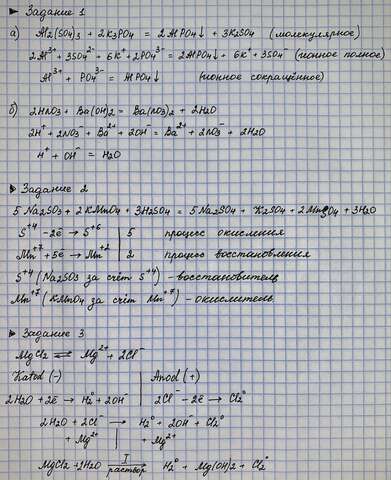 ► Задание 1
а) Al2(SO4)3 + 2K3PO4 = 2AlPO4↓ + 3K2SO4 (молекулярное)
2Al³⁺ + 3SO4²⁻ + 6K⁺ + 2PO4³⁻ = 2AlPO4↓ + 6K⁺ + 3SO4²⁻ (ионное полное)
Al³⁺ + PO4³⁻ = AlPO4↓ (ионное сокращённое)
б) 2HNO3 + Ba(OH)2 = Ba(NO3)2 + 2H2O
2H⁺ + 2NO3⁻ + Ba²⁺ + 2OH⁻ = Ba²⁺ + 2NO3⁻ + 2H2O
H⁺ + OH⁻ = H2O
► Задание 2
5Na2SO3 + 2KMnO4 + 3H2SO4 = 5Na2SO4 + K2SO4 + 2MnSO4 + 3H2O
S⁺⁴ -2ē → S⁺⁶ | 5 процесс окисления
Mn⁺⁷ + 5ē → Mn⁺² | 2 процесс восстановления
S⁺⁴ (Na2SO3 за счёт S⁺⁴) - восстановитель
Mn⁺⁷ (KMnO4 за счёт Mn⁺⁷) - окислитель
► Задание 3
MgCl2 ⇌ Mg²⁺ + 2Cl⁻
Katod (-) | Anod (+)
2H2O + 2ē → H2⁰ + 2OH⁻ | 2Cl⁻ - 2ē → Cl2⁰
2H2O + 2Cl⁻ → H2⁰ + 2OH⁻ + Cl2⁰
+ Mg²⁺ | + Mg²⁺
MgCl2 + 2H2O I раствор → H2⁰ + Mg(OH)2 + Cl2⁰